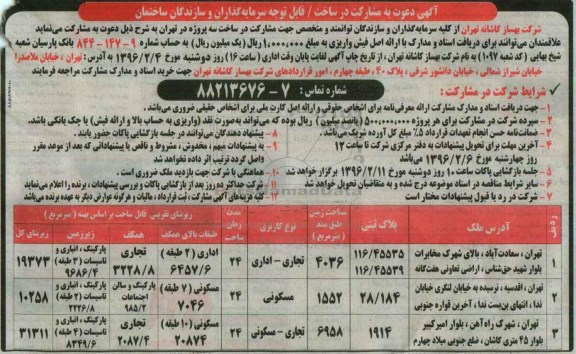 آگهی دعوت به مشارکت در ساخت / قابل توجه سرمایه‌گذاران و سازندگان ساختمان
شرکت بهساز کاشانه تهران از کلیه سرمایه‌گذاران و سازندگان توانمند و متخصص جهت مشارکت در ساخت سه پروژه در تهران به شرح ذیل دعوت به مشارکت می‌نماید
علاقمندان می‌توانند برای دریافت اسناد و مدارک با ارائه اصل فیش واریزی به مبلغ ۱/۰۰۰/۰۰۰ریال (یک میلیون ریال) به حساب شماره ۹-۱۴۷-۸۴۴ بانک پارسیان شعبه
شیخ بهایی (کد شعبه ۱۰۹۷) به نام شرکت بهساز کاشانه تهران، از تاریخ چاپ آگهی لغایت پایان وقت اداری (ساعت ۱۶) روز دوشنبه مورخ ۱۳۹۶/۲/۴ به آدرس: تهران، خیابان ملاصدرا
خیابان شیراز شمالی، خیابان دانشور شرقی، پلاک ۴۰، طبقه چهارم، امور قراردادهای شرکت بهساز کاشانه تهران جهت خرید اسناد و مدارک مشارکت مراجعه فرمایند
شرایط شرکت در مشارکت: شماره تماس: ۷-۸۸۲۱۳۶۷۶
۱- جهت دریافت اسناد و مدارک مشارکت ارائه معرفی‌نامه برای اشخاص حقوقی و ارائه اصل کارت ملی برای اشخاص حقیقی ضروری می‌باشد.
۲- سپرده شرکت در مشارکت برای هر پروژه ۵۰۰/۰۰۰/۰۰۰ (پانصد میلیون) ریال بوده که می‌تواند به‌صورت نقد (واریزی به حساب بالا و ارائه فیش) یا چک بانکی باشد.
۳- ضمانت‌نامه حسن انجام تعهدات قرارداد ۵٪ مبلغ کل آورده شریک می‌باشد.
۴- آخرین مهلت برای تحویل پیشنهادات به دفتر مرکزی شرکت تا ساعت ۱۲
روز چهارشنبه مورخ ۱۳۹۶/۲/۶ می‌باشد
۵- جلسه بازگشایی پاکات ساعت ۱۰ روز دوشنبه مورخ ۱۳۹۶/۲/۱۱ برگزار خواهد شد
۶- سایر شرایط مناقصه در اسناد موضوعه درج شده و به متقاضیان تحویل خواهد شد
۷- شرکت در رد یا قبول پیشنهادات مختار است
۸- پیشنهاد دهندگان می‌توانند در جلسه بازگشایی پاکات حضور یابند.
۹- به پیشنهادات مبهم، مخدوش، مشروط و ناقص یا پیشنهاداتی که بعد از موعد مقرر
واصل گردد ترتیب اثر داده نخواهد شد
۱۰- هماهنگی با شرکت جهت بازدید ملک ضروری است.
۱۱- شرکت حداکثر ده روز بعد از بازگشایی پاکات و بررسی پیشنهادات، برنده را اعلام می‌نماید
۱۲- کلیه هزینه‌های آگهی مشارکت، ثبت قرارداد، مالیات و هرگونه عوارض دیگر به عهده برنده می‌باشد
ردیف | آدرس ملک | پلاک ثبتی | مساحت زمین طبق سند (مترمربع) | نوع کاربری | مدت زمان ساخت | زیربنای تقریبی قابل ساخت بر اساس پهنه (مترمربع)
طبقات بالای همکف | همکف | زیرزمین | زیربنای کل
۱ | تهران، سعادت‌آباد، بالای شهرک مخابرات بلوار شهید حق‌شناس، اراضی تعاونی هفتگانه | ۱۱۶/۴۵۵۳۵ ۱۱۶/۴۵۵۳۹ | ۴۰۳۶ | تجاری - اداری | ۲۴ | اداری (۲ طبقه) ۶۴۵۷/۶ | تجاری ۳۲۲۸/۸ | پارکینگ، انباری و تاسیسات (۳ طبقه) ۹۶۸۶/۴ | ۱۹۳۷۳
۲ | تهران، اقدسیه، نرسیده به خیابان لنگری خیابان ندا، انتهای بن‌بست ندا، آخرین قواره جنوبی | ۲۸/۱۸۴ | ۱۵۵۲ | مسکونی | ۲۴ | مسکونی (۷ طبقه) ۷۰۴۶ | پارکینگ و سالن اجتماعات ۹۸۵/۲ | پارکینگ، انباری و تاسیسات (۲ طبقه) ۲۲۲۶/۸ | ۱۰۲۵۸
۳ | تهران، شهرک راه‌آهن، بلوار امیرکبیر بلوار ۴۵ متری کاشان، ضلع جنوبی میلاد چهارم | ۱۹۱۴ | ۶۹۵۸ | تجاری - مسکونی | ۲۴ | مسکونی (۱۰ طبقه) ۲۰۸۷۴ | تجاری ۲۰۸۷/۴ | پارکینگ، انباری و تاسیسات (۲ طبقه) ۸۳۴۹/۶ | ۳۱۳۱۱